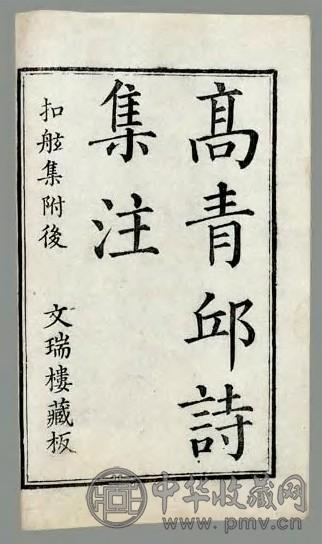 高青邱詩
集注
扣舷集附後
文瑞樓藏板
中华收藏网
www.pmv.cn